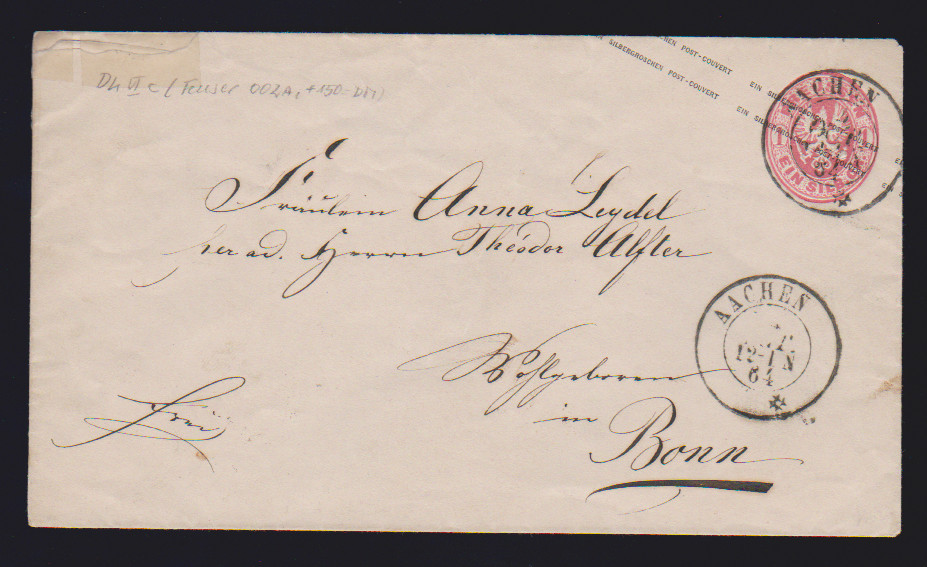 EIN SILBERGROSCHEN POST-COUVERT EIN SILBERGROSCHEN POST-COUVERT
SILBERGROSCHEN POST-COUVERT EIN
AACHEN
1
EIN SILB
Fräulein Anna Leydel
per ad. Herrn Théodor Alfter
AACHEN
12-1 N
64
Wohlgeboren
in
Bonn
frei